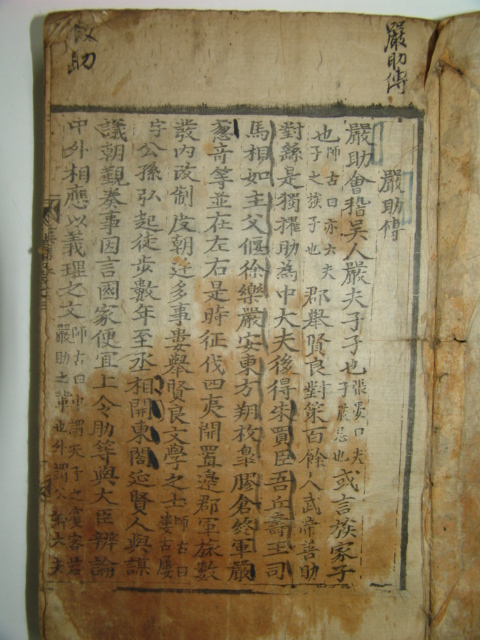 嚴助傳
嚴助傳
嚴助會稽吳人嚴夫子子也張晏曰夫子嚴忌也或言族家子
也師古曰亦云夫子之族子也郡舉賢良對策百餘人武帝善助
對繇是獨擢助爲中大夫後得朱買臣吾丘壽王司
馬相如主父偃徐樂嚴安東方朔枚皐膠倉終軍嚴
葱奇等並在左右是時征伐四夷開置邊郡軍旅數
發內改制度朝廷多事婁舉賢良文學之士師古曰婁古屢
字公孫弘起徒步數年至丞相開東閤延賢人與謀
議朝覲奏事因言國家便宜上令助等與大臣辨論
中外相應以義理之文師古曰中謂天子之賓客若嚴助之輩也外謂公卿大夫
助